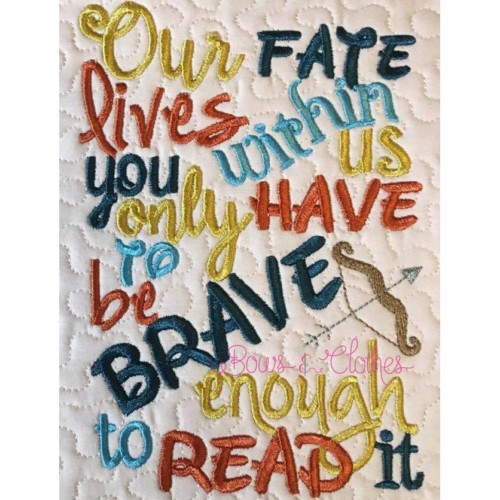 Our FATE
lives within
us
you only HAVE
TO
be BRAVE
Bows & Clothes
enough
to READ it